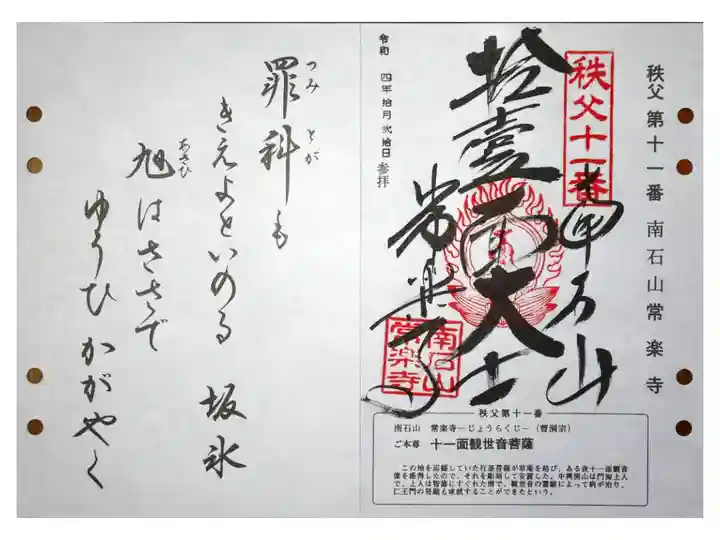 秩父第十一番 南石山常楽寺
秩父十一番
南石山
拾壹面大士
常楽寺
南石山
常楽寺
令和 四年拾月弐拾日参拝
秩父第十一番
南石山 常楽寺―じょうらくじ―(曹洞宗)
ご本尊 十一面観世音菩薩
この地を巡錫していた行基菩薩が草庵を結び、ある夜十一面観音
像を感得したので、それを彫刻して安置した。中興開山は門海上人
で、上人は智徳にすぐれた僧で、観世音の霊験によって病が治り、
仁王門の発願も成就することができたという。
罪科も
つみ とが
きえよといのる 坂氷
旭はさゝで
あさひ
ゆうひかがやく